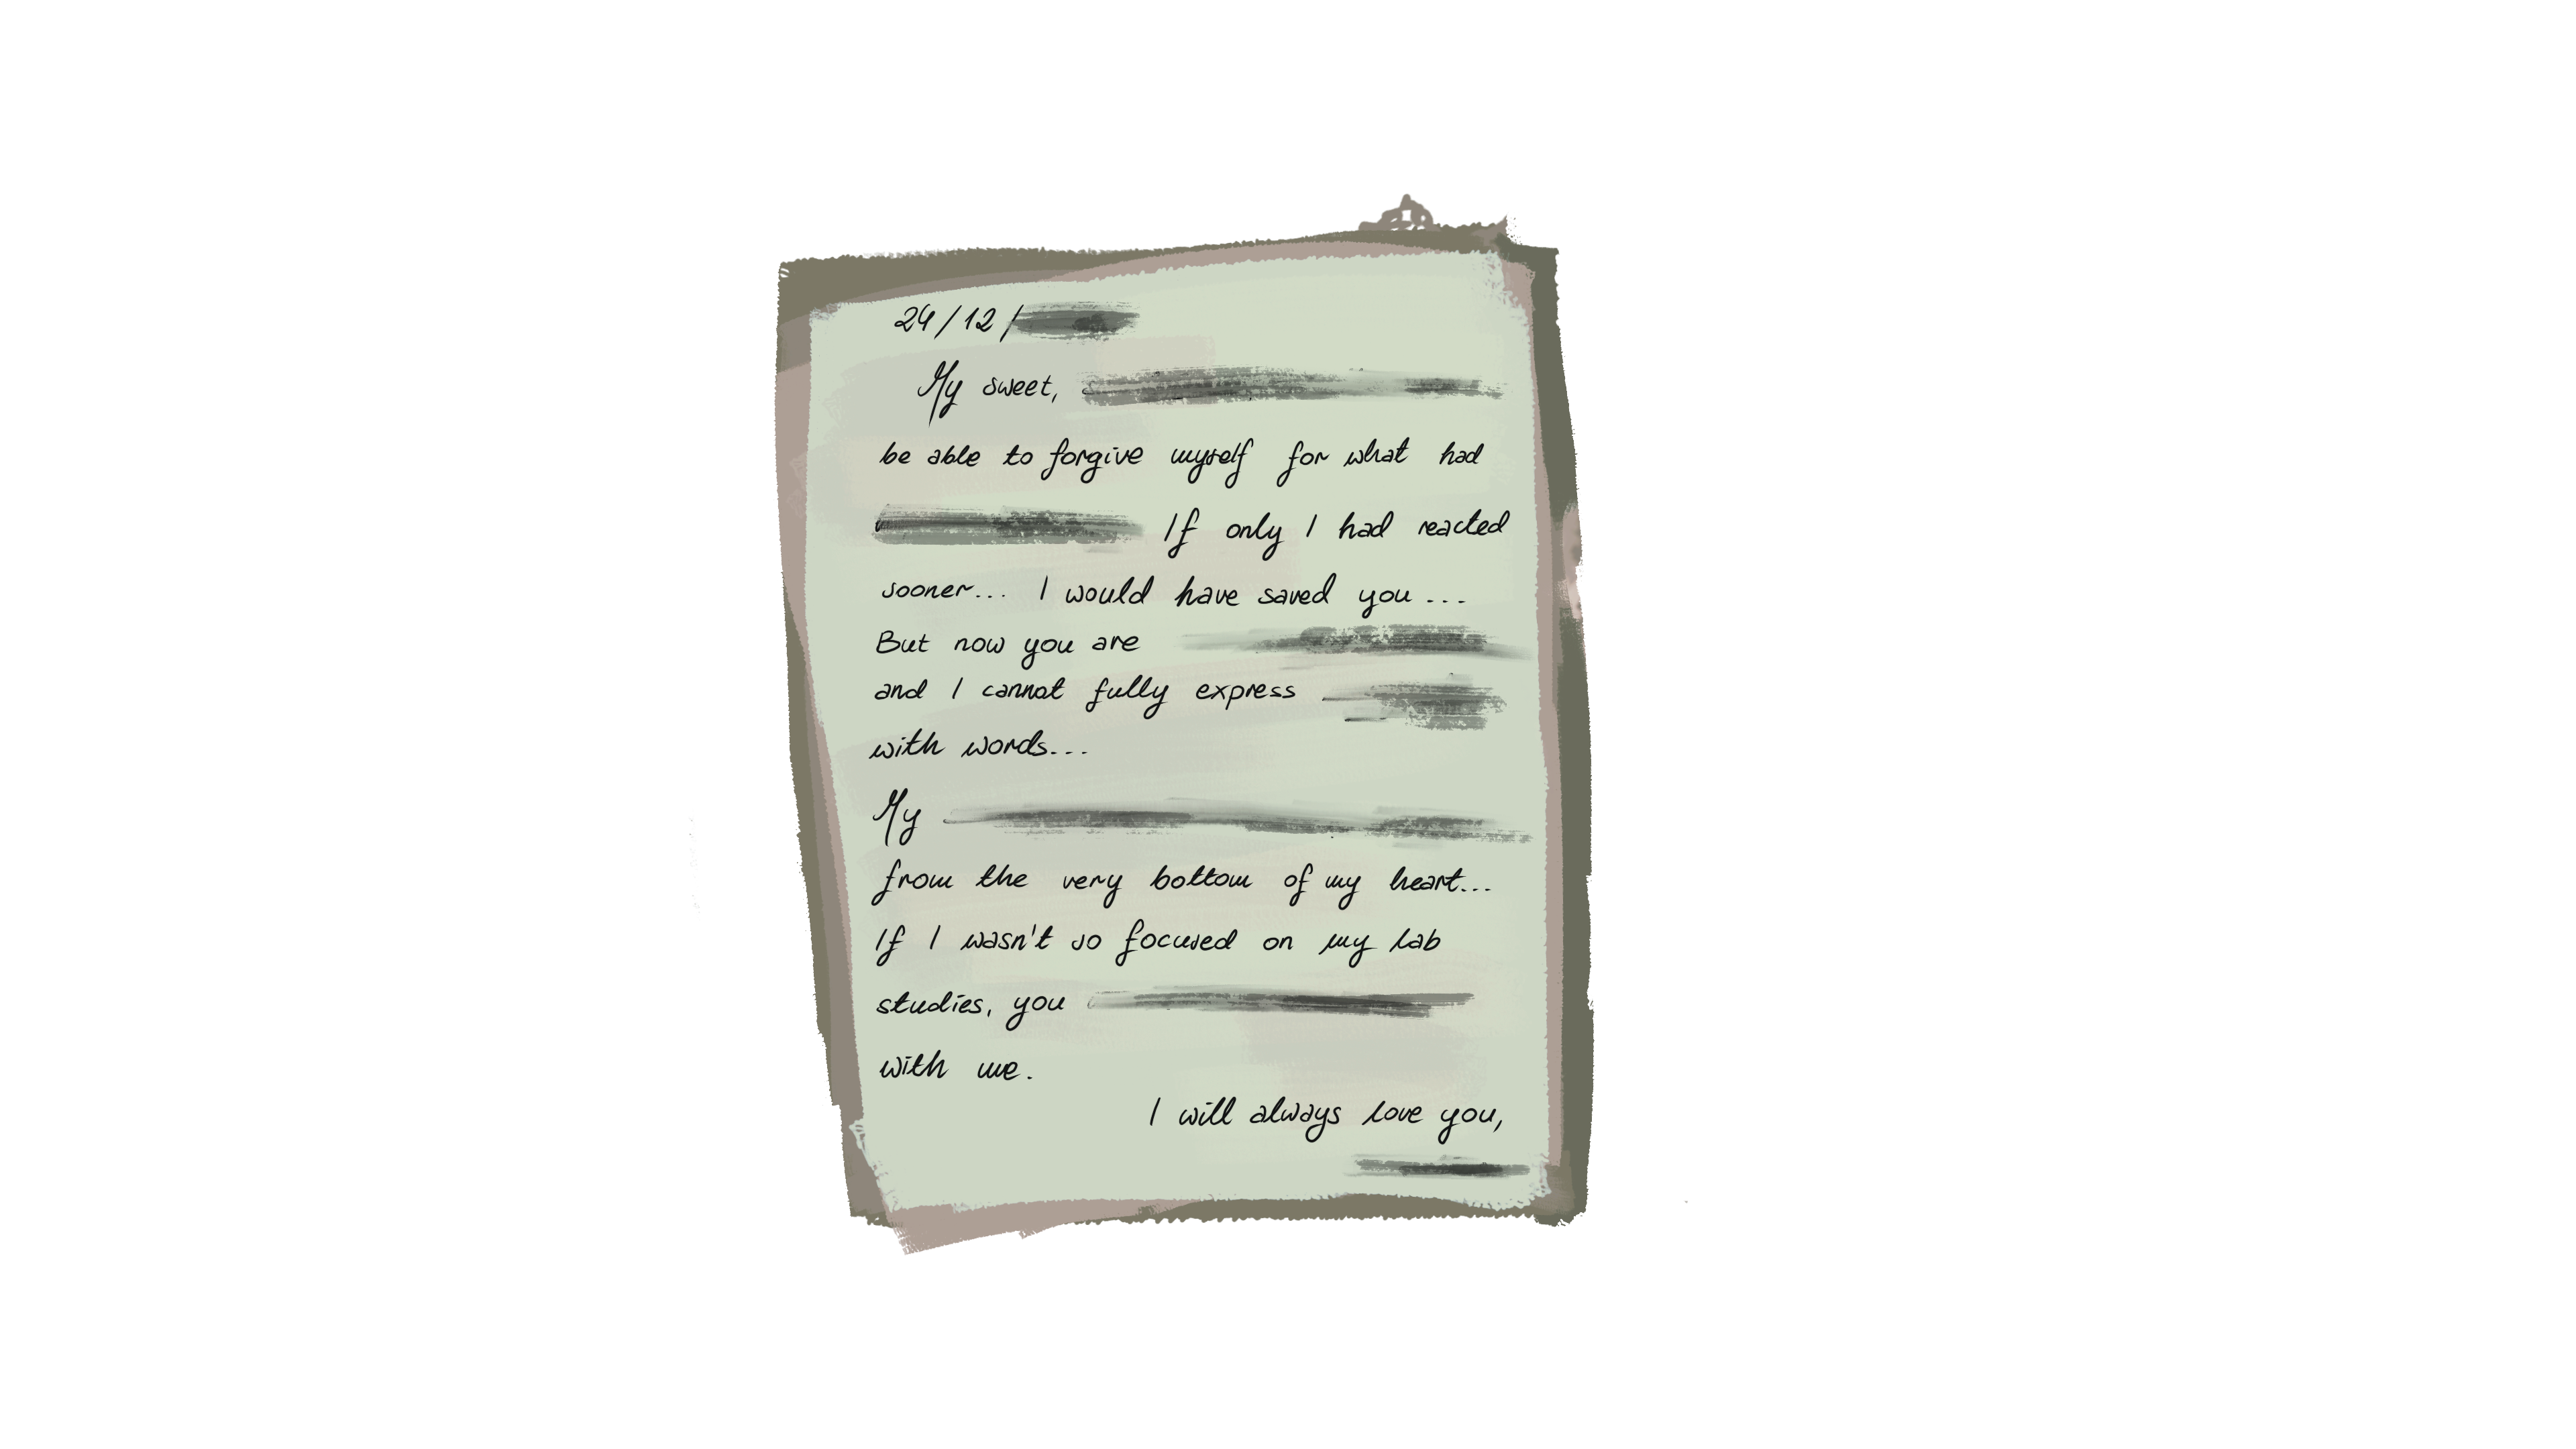 24/12/
My sweet,
be able to forgive myself for what had
If only I had reacted
sooner... I would have saved you ...
But now you are
and I cannot fully express
with words...
My
from the very bottom of my heart...
If I wasn't so focused on my lab
studies, you
with me.
I will always love you,